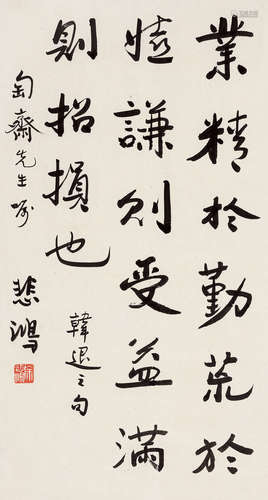 業精於勤荒於
嬉謙則受益滿
則招損也
韓退之句
匋齋先生屬
悲鴻